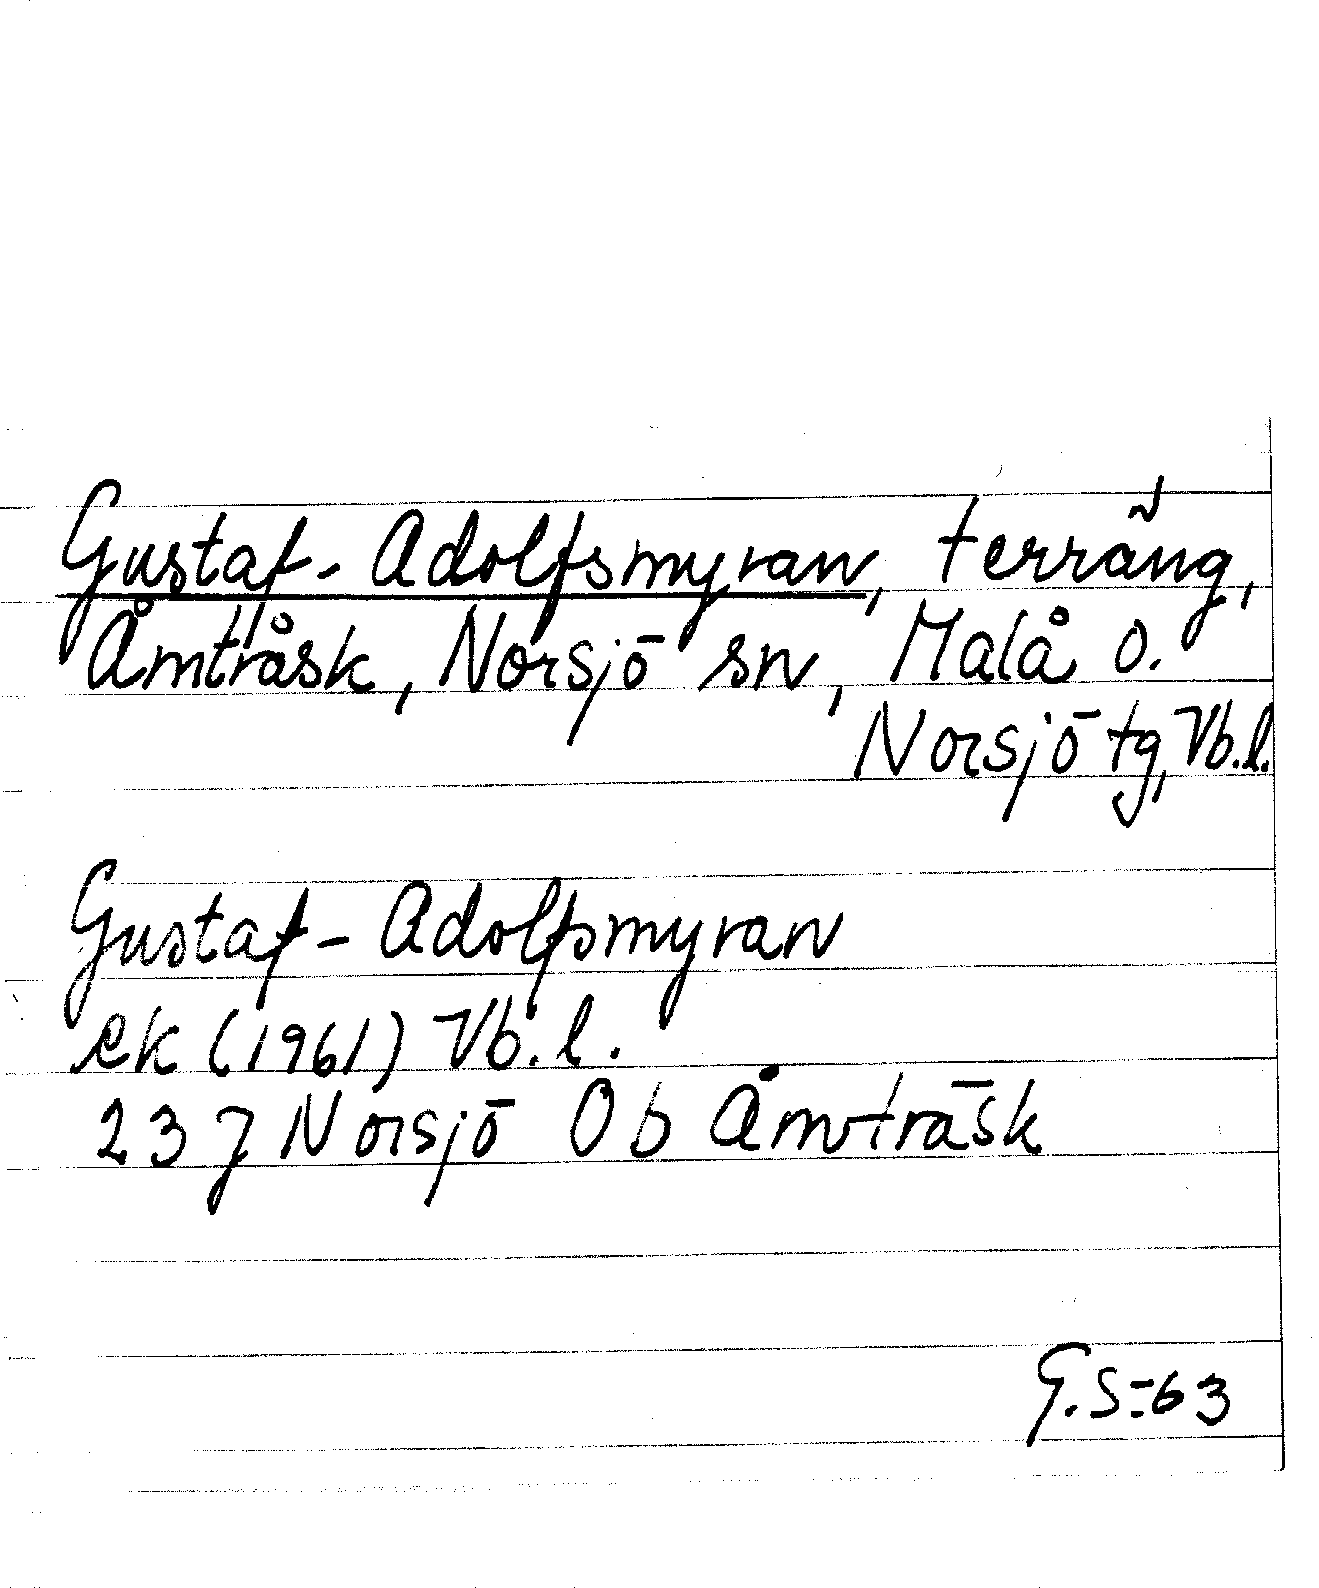 Gustaf-Adolfsmyran, terräng,
Åmträsk, Norsjö sn, Malå o.
Norsjö tg, Vb.l.
Gustaf-Adolfsmyran
ek (1961) Vb.l.
23 J Norsjö Ob Åmträsk
G.S-63